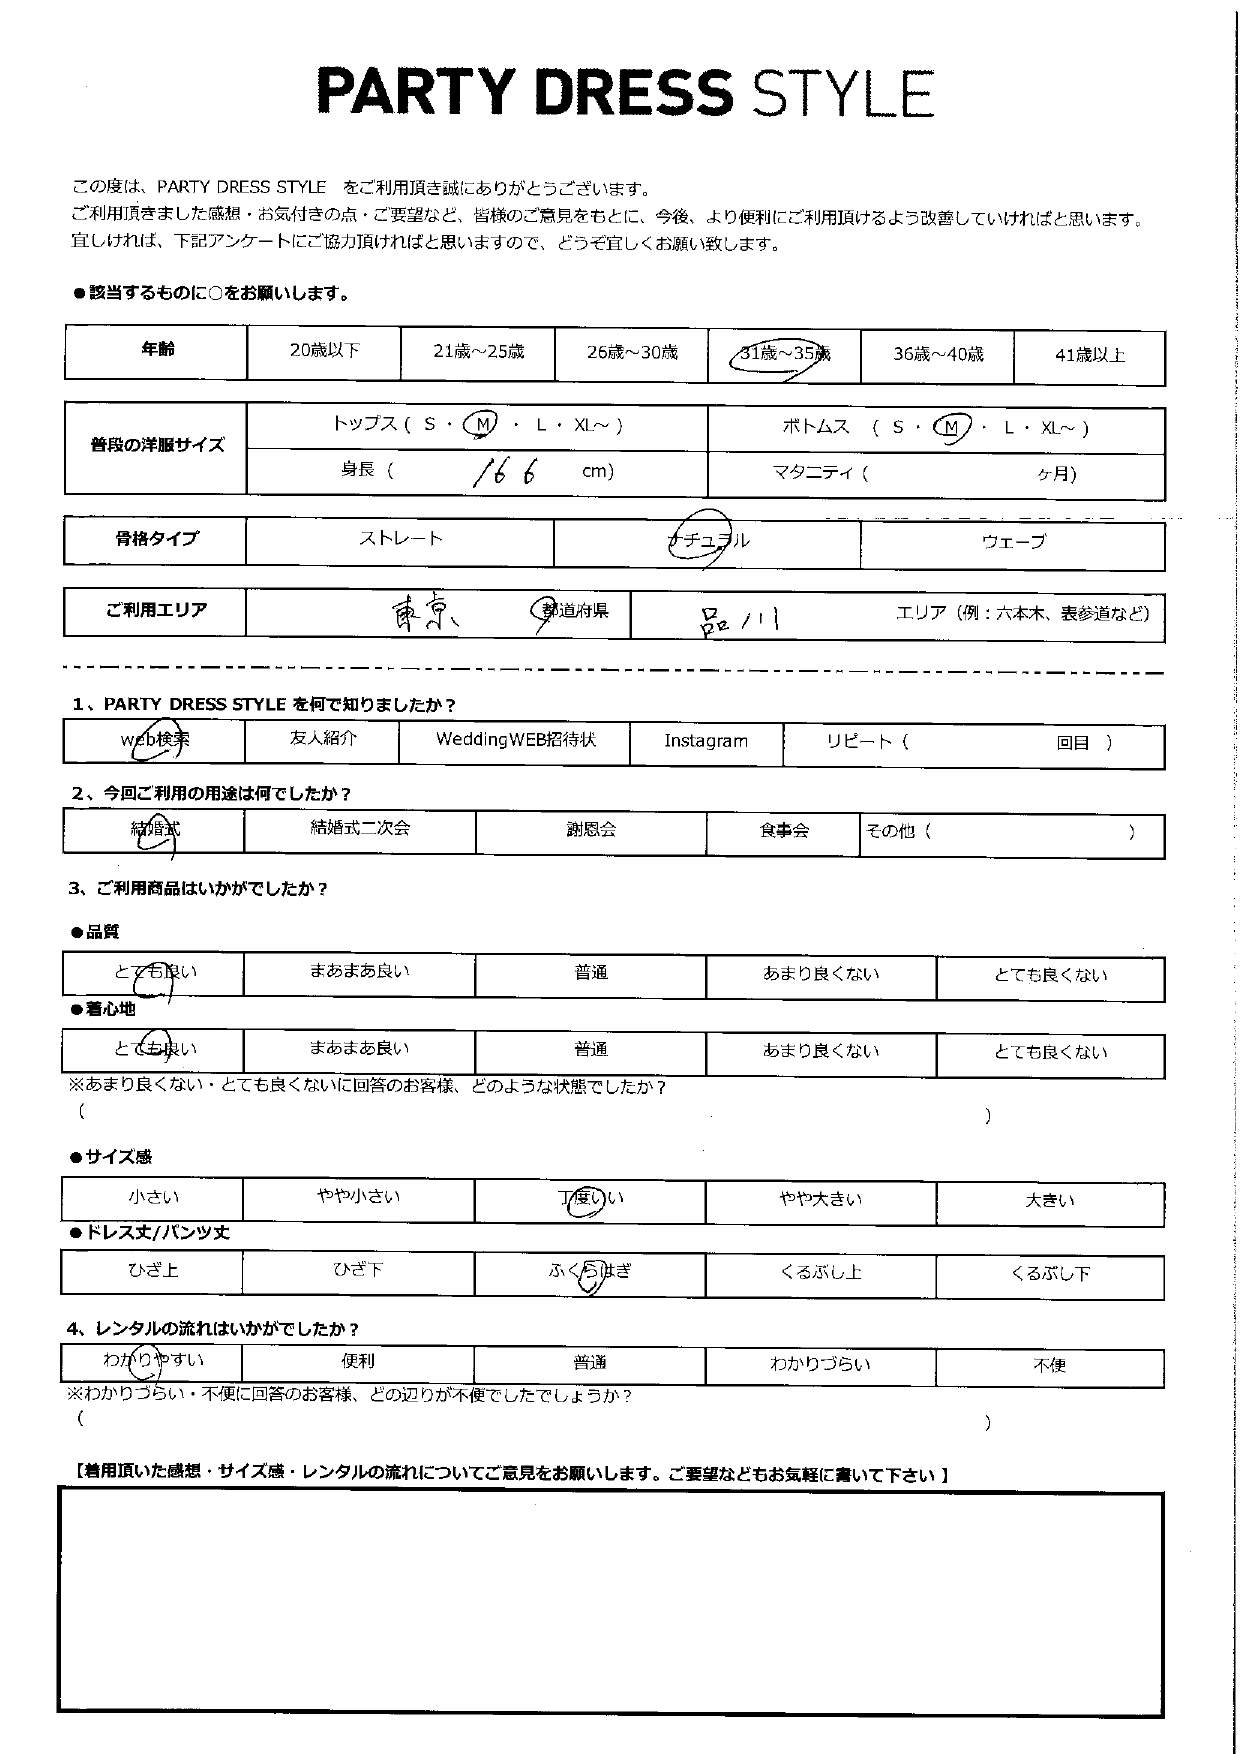 PARTY DRESS STYLE
この度は、PARTY DRESS STYLE をご利用頂き誠にありがとうございます。
ご利用頂きました感想・お気付きの点・ご要望など、皆様のご意見をもとに、今後、より便利にご利用頂けるよう改善していければと思います。
宜しければ、下記アンケートにご協力頂ければと思いますので、どうぞ宜しくお願い致します。
●該当するものに○をお願いします。
年齢 20歳以下 21歳～25歳 26歳～30歳 31歳～35歳 36歳～40歳 41歳以上
普段の洋服サイズ
トップス ( S ・ M ・ L ・ XL～ ) ボトムス ( S ・ M ・ L ・ XL～ )
身長 ( 166 cm) マタニティ ( ヶ月)
骨格タイプ ストレート ナチュラル ウェーブ
ご利用エリア 東京 都道府県 品川 エリア（例：六本木、表参道など）
1、PARTY DRESS STYLE を何で知りましたか？
web検索 友人紹介 WeddingWEB招待状 Instagram リピート ( 回目 )
2、今回ご利用の用途は何でしたか？
結婚式 結婚式二次会 謝恩会 食事会 その他 ( )
3、ご利用商品はいかがでしたか？
●品質
とても良い まあまあ良い 普通 あまり良くない とても良くない
●着心地
とても良い まあまあ良い 普通 あまり良くない とても良くない
※あまり良くない・とても良くないに回答のお客様、どのような状態でしたか？
( )
●サイズ感
小さい やや小さい 丁度いい やや大きい 大きい
●ドレス丈/パンツ丈
ひざ上 ひざ下 ふくらはぎ くるぶし上 くるぶし下
4、レンタルの流れはいかがでしたか？
わかりやすい 便利 普通 わかりづらい 不便
※わかりづらい・不便に回答のお客様、どの辺りが不便でしたでしょうか？
( )
【着用頂いた感想・サイズ感・レンタルの流れについてご意見をお願いします。ご要望などもお気軽に書いて下さい 】